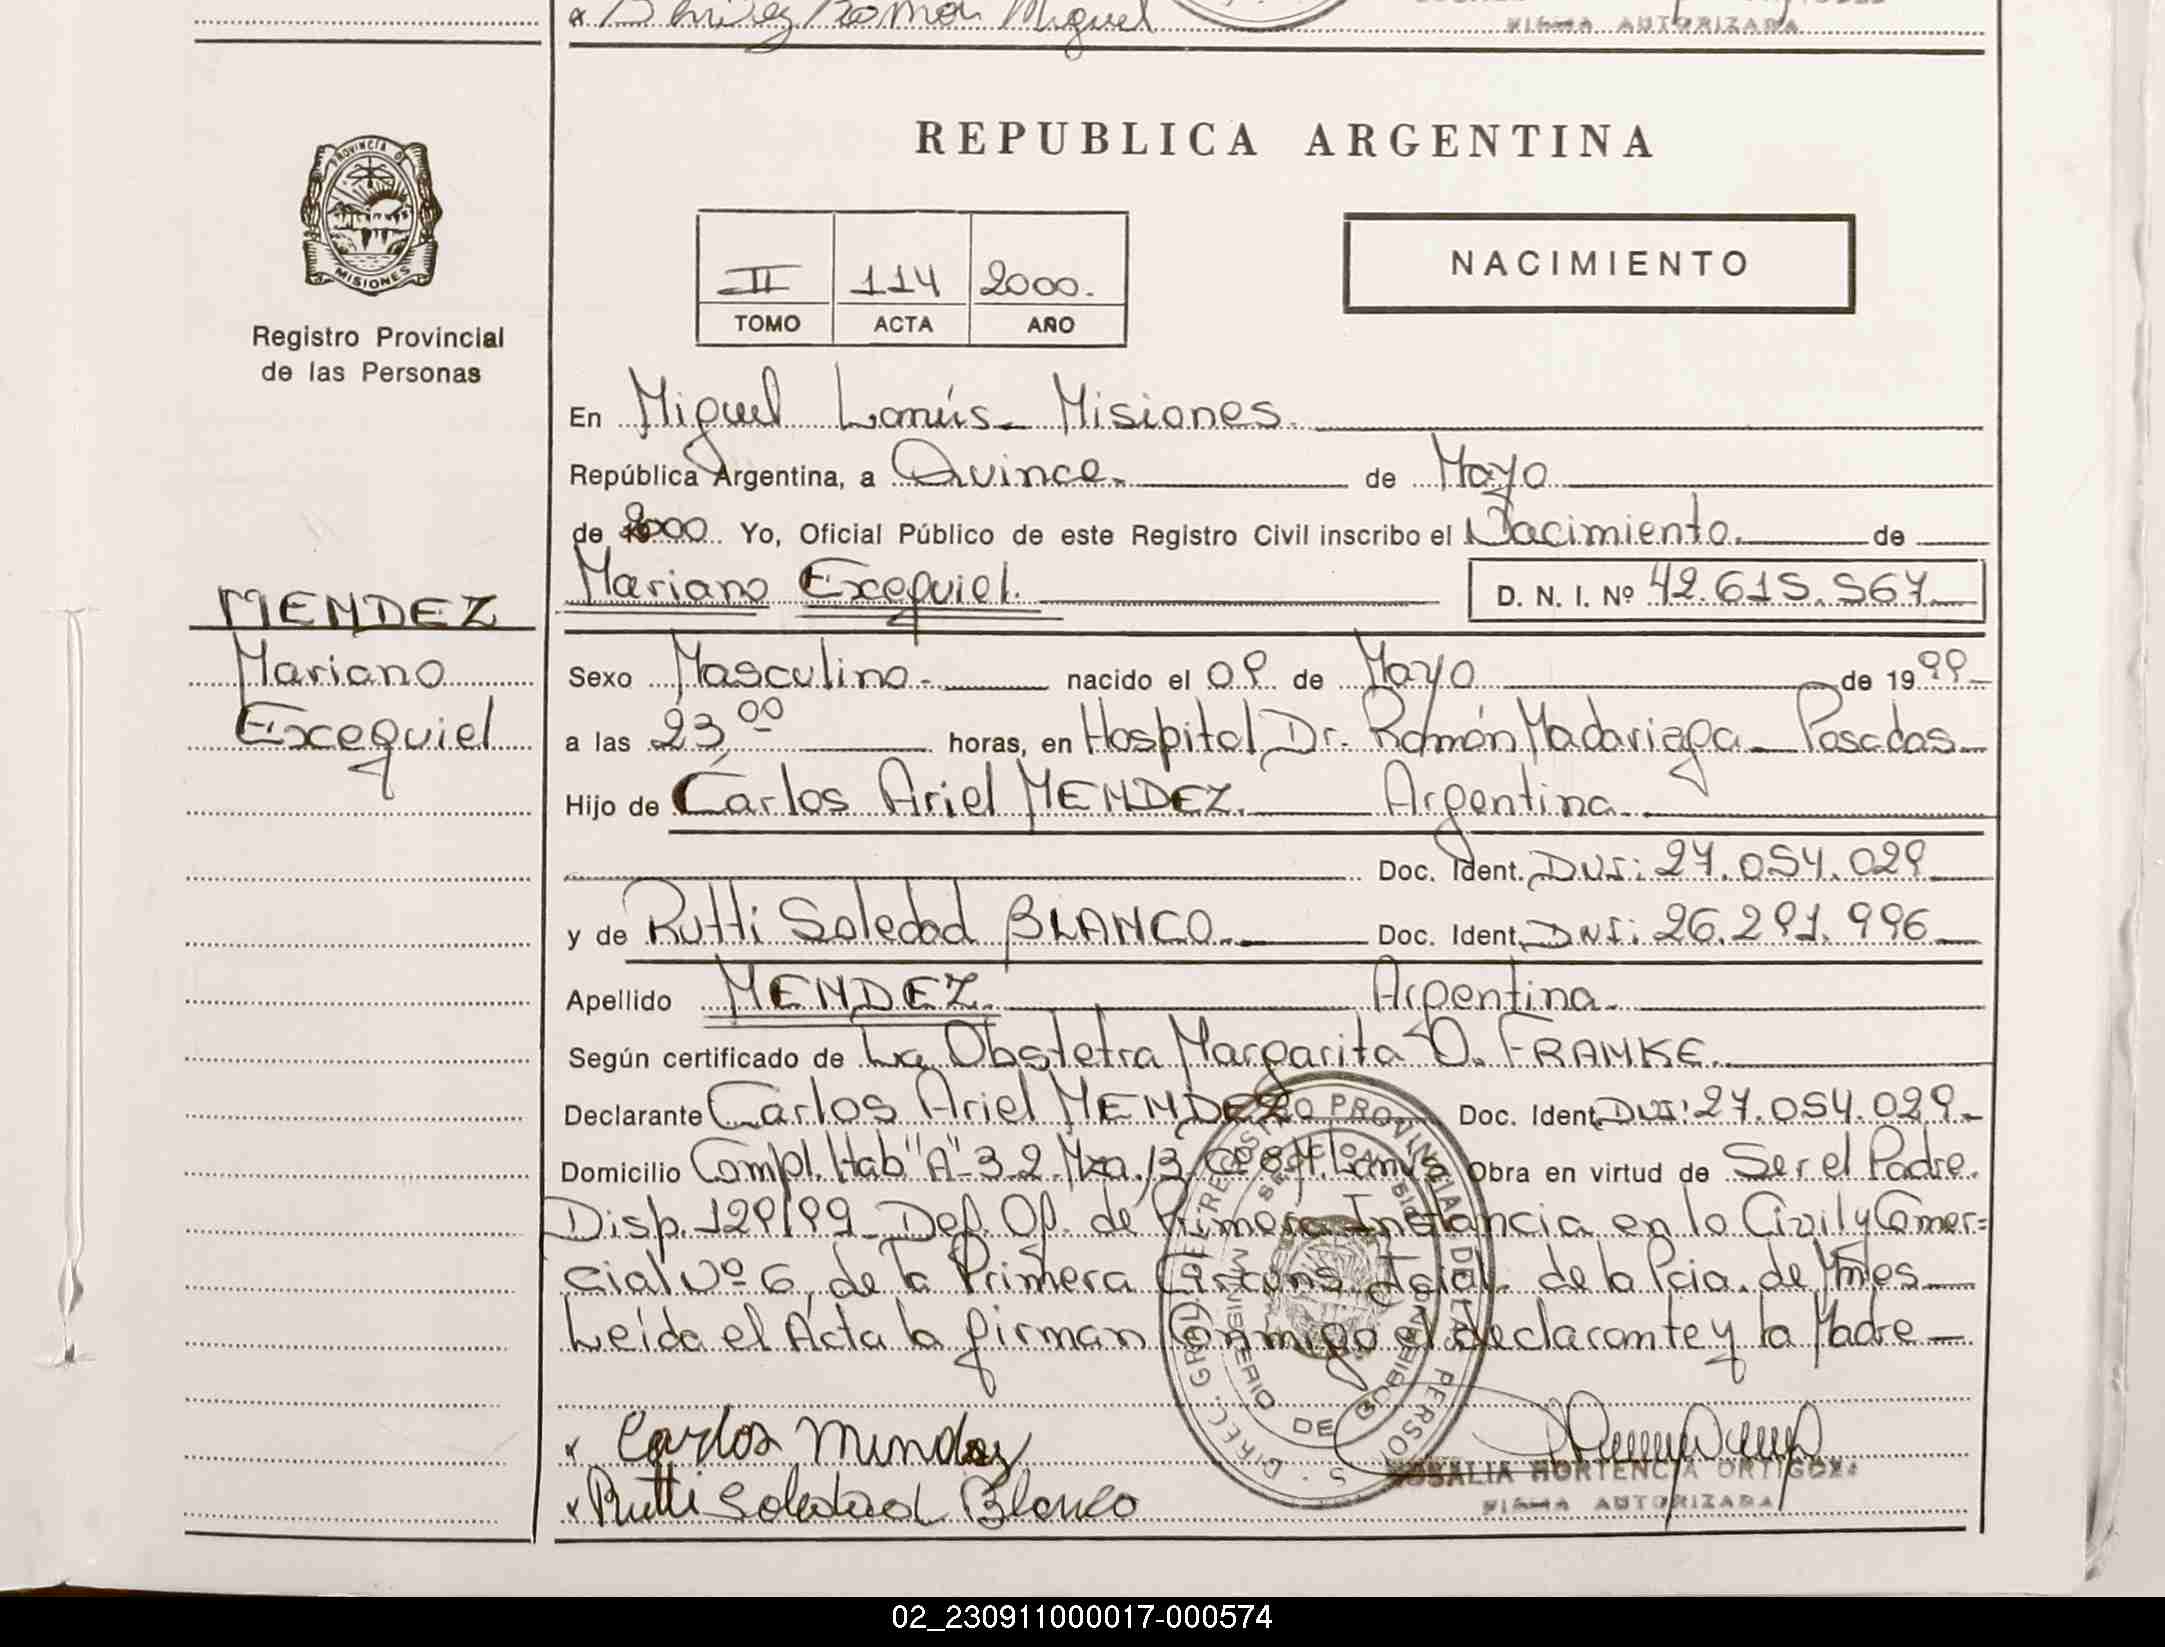 Benitez Ramon Miguel
FIRMA AUTORIZADA
PROVINCIA DE
MISIONES
Registro Provincial
de las Personas
REPUBLICA ARGENTINA
II 114 2000.
TOMO ACTA AÑO
NACIMIENTO
En Miguel Lanús - Misiones.
República Argentina, a Quince. de Mayo
de 2000 Yo, Oficial Público de este Registro Civil inscribo el Nacimiento. de
Mariano Exequiel. D. N. I. Nº 42.615.567
MENDEZ
Mariano
Exequiel
Sexo Masculino.- nacido el 09 de Mayo de 1999
a las 23,00 horas, en Hospital Dr. Ramón Madariaga - Posadas
Hijo de Carlos Ariel MENDEZ. Argentina.
Doc. Ident. DNI: 27.054.029
y de Rutti Soledad BLANCO. Doc. Ident. DNI: 26.291.996
Apellido MENDEZ. Argentina.
Según certificado de La Obstetra Margarita O. FRANKE.
Declarante Carlos Ariel MENDEZ Doc. Ident. DNI: 27.054.029.
Domicilio Compl. Hab "A" 3-2 Mza. 13 Cª 8 M. Lanús Obra en virtud de Ser el Padre.
Disp. 129/99 - Def. Of. de Primera Instancia en lo Civil y Comer=
cial Nº 6, de la Primera Circuns. Jcial. de la Pcia. de Mnes
Leída el Acta la firman Conmigo el declarante y la Madre
x Carlos Mendez
x Rutti Soledad Blanco
DIREC. GRAL. DEL REGISTRO PROVINCIAL DE LAS PERSONAS
MINISTERIO DE GOBIERNO
ROSALIA HORTENCIA ORTIGOZA
FIRMA AUTORIZADA
02_230911000017-000574